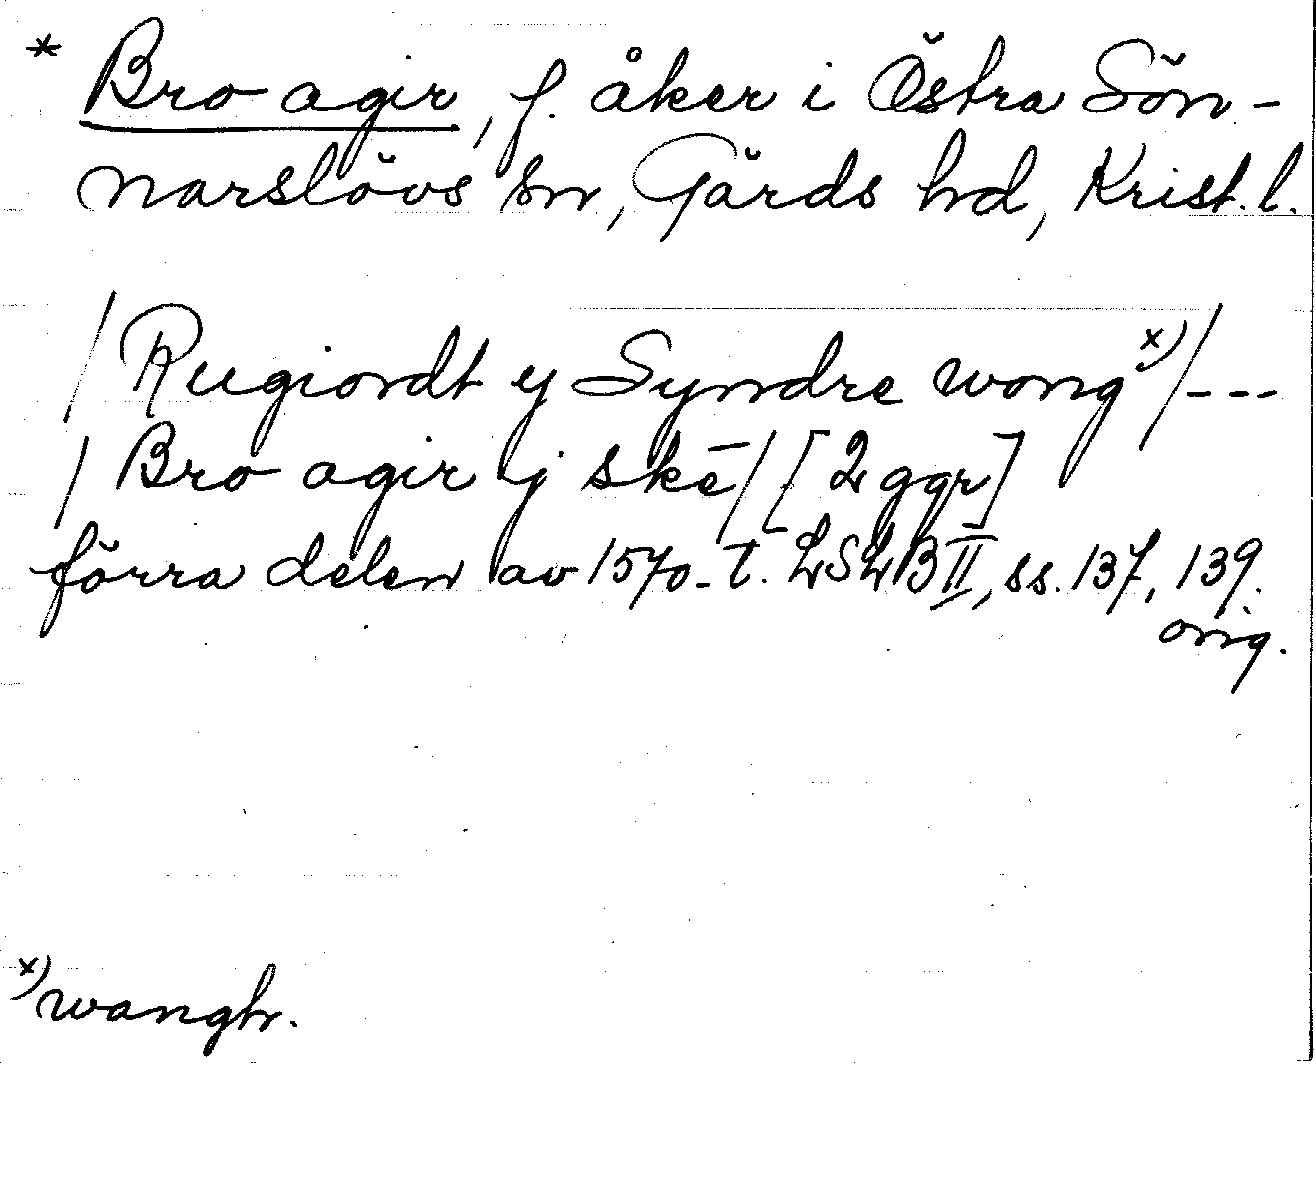 * Bro agir, f. åker i Östra Sön-
narslövs sn, Gärds hd, Krist. l.
/ Rugiordt y Syndre wong x) / ---
/ Bro agir ÿ skē / [2 ggr]
förra delen av 1570-t. LSLB II, ss. 137, 139.
orig.
x) wangh.